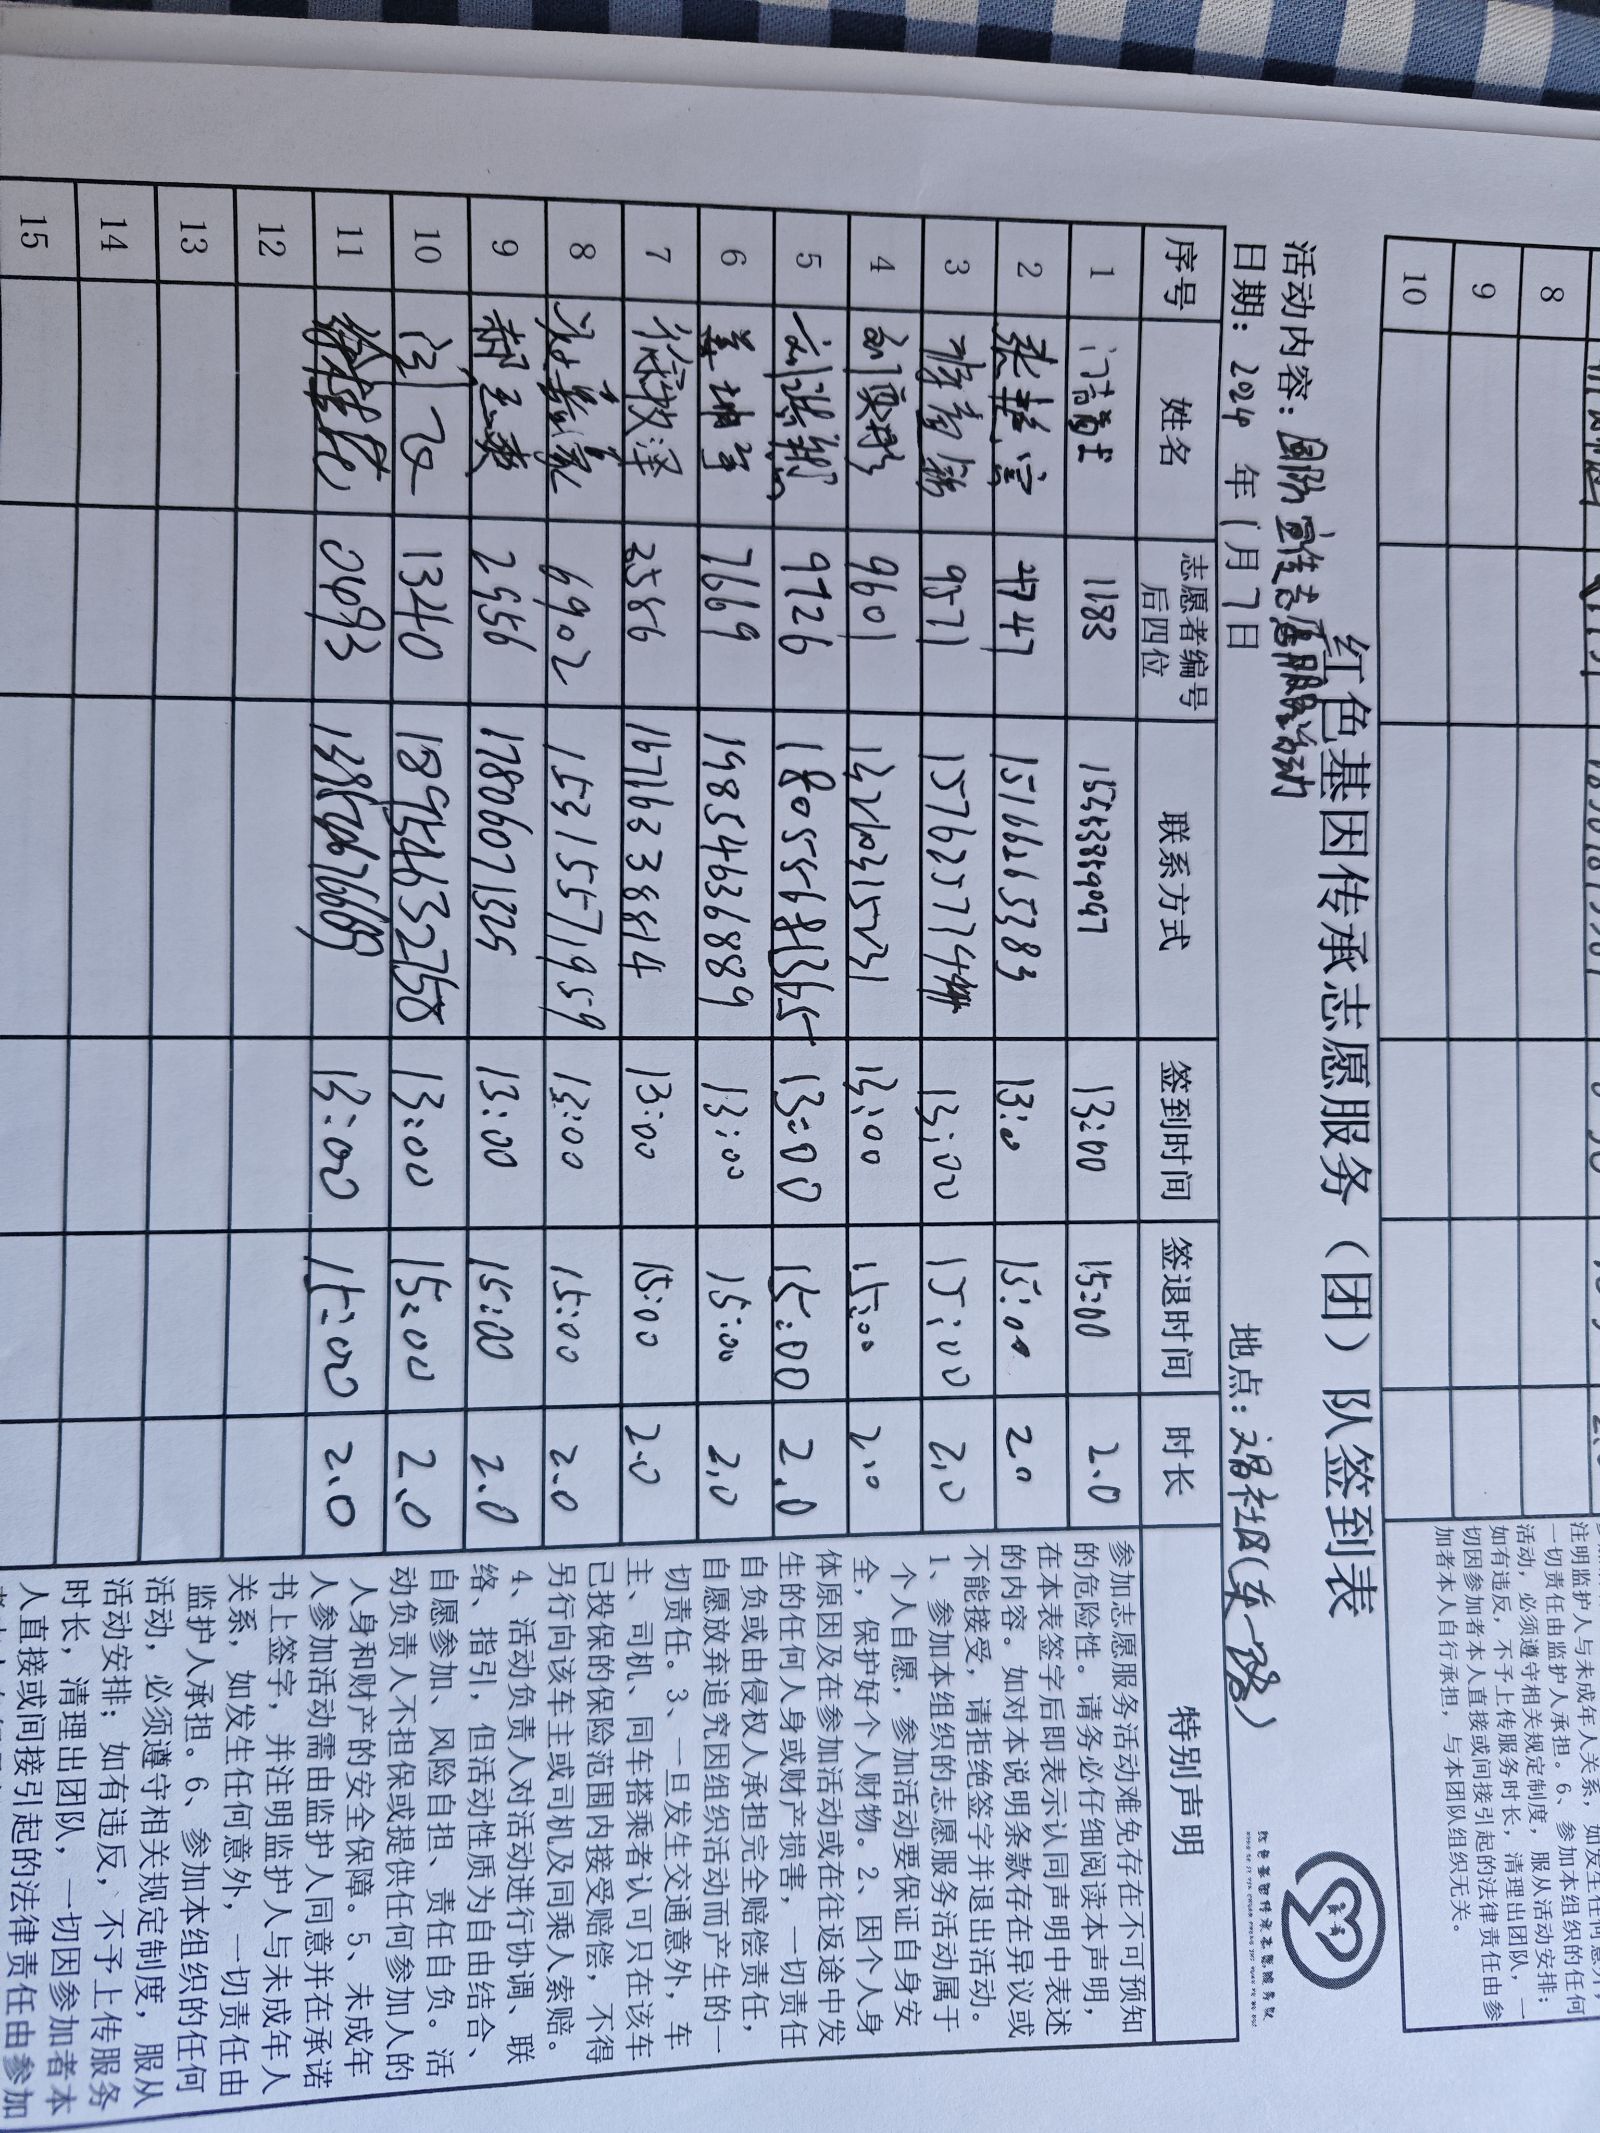 8
9
10
注明监护人与未成年人关系,如发生任何意外,
一切责任由监护人承担。6、参加本组织的任何
活动,必须遵守相关规定制度,服从活动安排;
如有违反,不予上传服务时长,清理出团队,一
切因参加者本人直接或间接引起的法律责任由参
加者本人自行承担,与本团队组织无关。
红色基因传承志愿服务(团)队签到表
活动内容: 国防宣传志愿服务活动
日期: 2024 年 1 月 7 日 地点:
红色基因传承志愿服务队
序号 姓名 志愿者编号后四位 联系方式 签到时间 签退时间 时长 特别声明
1 1183 13:00 15:00 2.0
2 4747 15166265383 13:00 15:00 2.0
3 9571 13:00 15:00 2.0
4 9601 13:00 15:00 2.0
5 9726 13:00 15:00 2.0
6 7669 19854636889 13:00 15:00 2.0
7 徐敬泽 2586 16716338814 13:00 15:00 2.0
8 6902 15315571959 13:00 15:00 2.0
9 2556 17806071525 13:00 15:00 2.0
10 1340 18954632758 13:00 15:00 2.0
11 0493 13:00 15:00 2.0
12
13
14
15
参加志愿服务活动难免存在不可预知
的危险性。请务必仔细阅读本声明,
在本表签字后即表示认同声明中表述
的内容。如对本说明条款存在异议或
不能接受,请拒绝签字并退出活动。
1、参加本组织的志愿服务活动属于
个人自愿,参加活动要保证自身安
全,保护好个人财物。2、因个人身
体原因及在参加活动或在往返途中发
生的任何人身或财产损害,一切责任
自负或由侵权人承担完全赔偿责任,
自愿放弃追究因组织活动而产生的一
切责任。3、一旦发生交通意外,车
主、司机、同车搭乘者认可只在该车
已投保的保险范围内接受赔偿,不得
另行向该车主或司机及同乘人索赔。
4、活动负责人对活动进行协调、联
络、指引,但活动性质为自由结合、
自愿参加、风险自担、责任自负。活
动负责人不担保或提供任何参加人的
人身和财产的安全保障。5、未成年
人参加活动需由监护人同意并在承诺
书上签字,并注明监护人与未成年人
关系,如发生任何意外,一切责任由
监护人承担。6、参加本组织的任何
活动,必须遵守相关规定制度,服从
活动安排;如有违反,不予上传服务
时长,清理出团队,一切因参加者本
人直接或间接引起的法律责任由参加